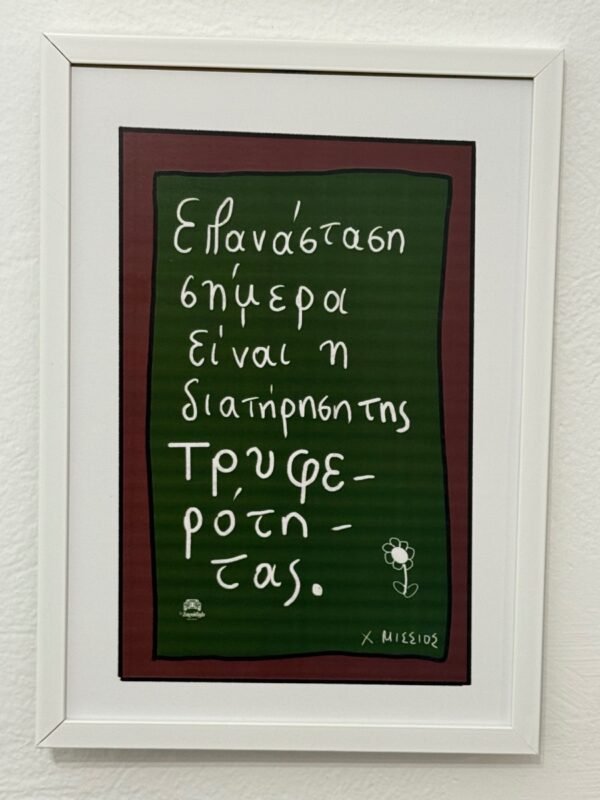 Επανάσταση
σήμερα
είναι η
διατήρηση της
τρυφε-
ρότη-
τας.
Χ ΜΙΣΣΙΟΣ